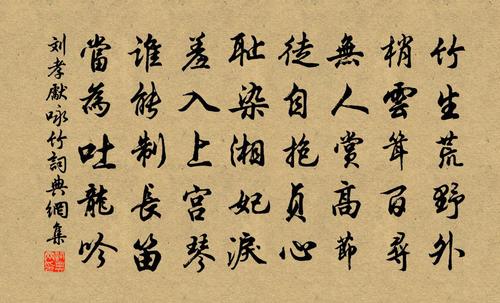 竹生荒野外
梢雲聳百尋
無人賞高節
徒自抱貞心
耻染湘妃淚
羞入上宮琴
誰能制長笛
當為吐龍吟
刘孝獻咏竹詞典網集